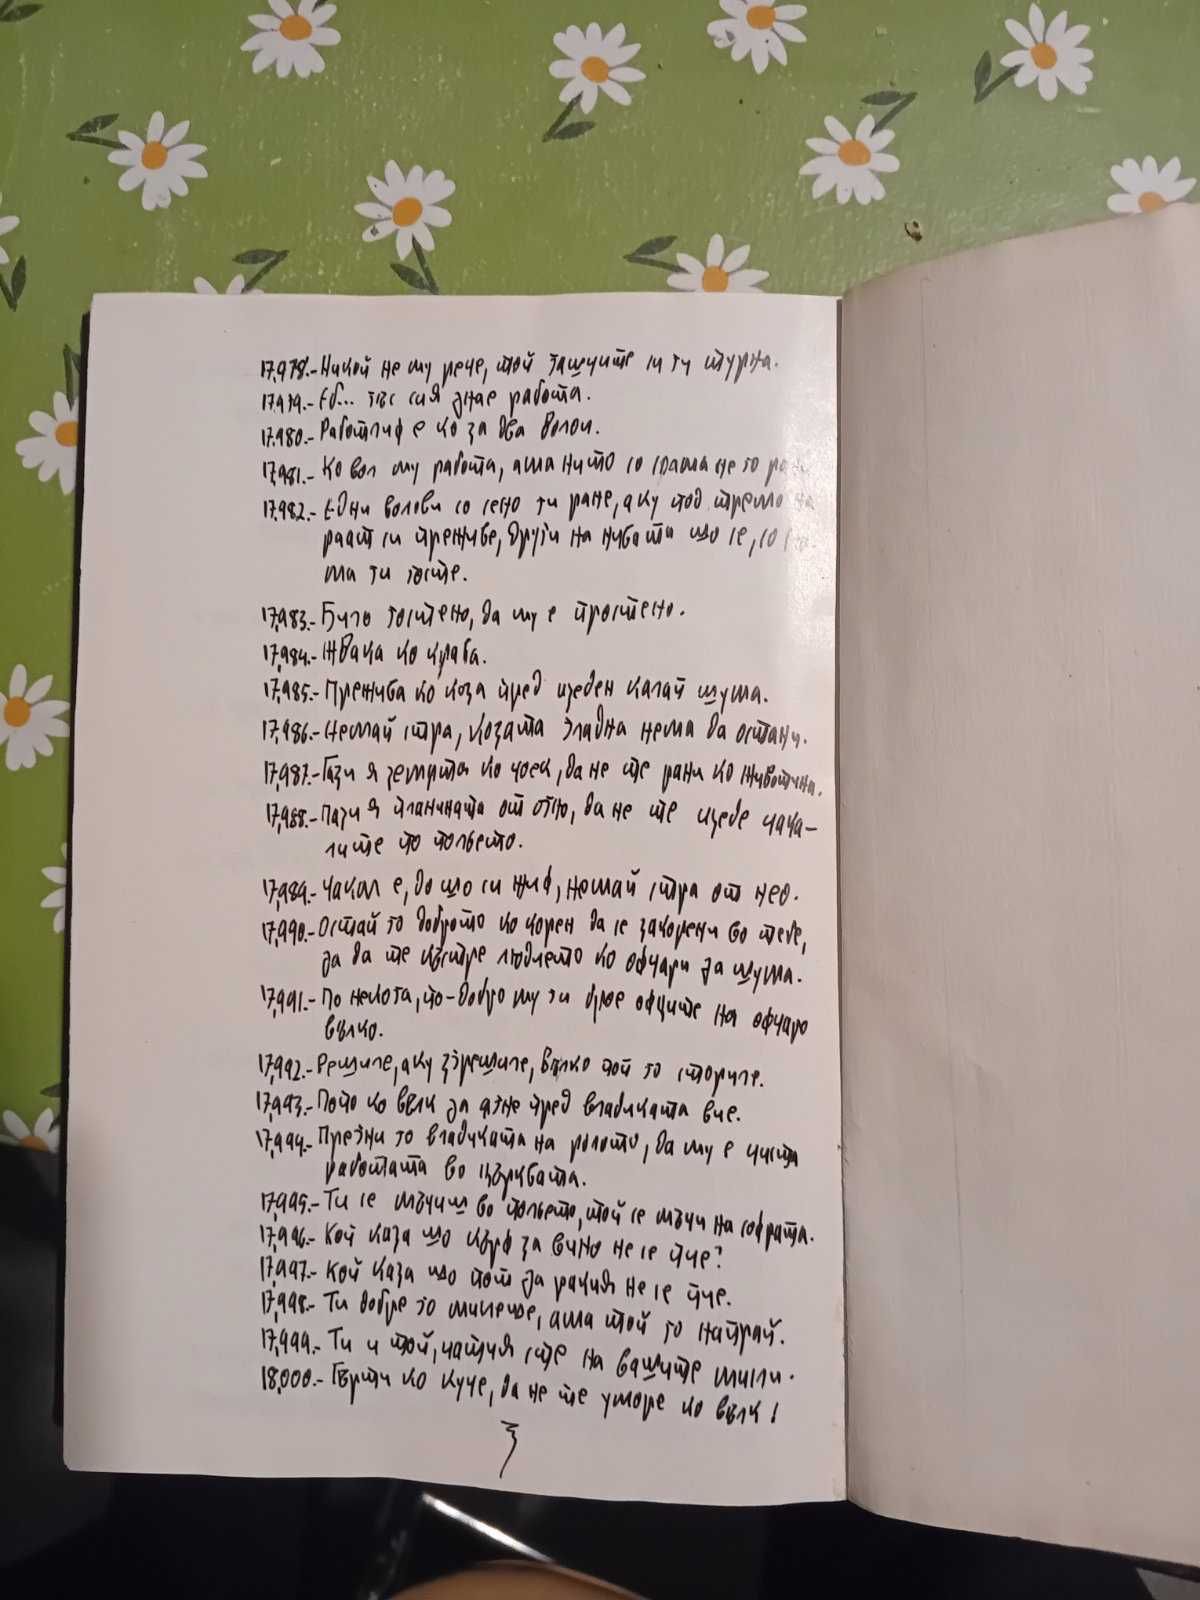 17,978.- Никой не му рече, той гашчите ги ги турна.
17,979.- Еб... гъс сия знае работа.
17,980.- Работлиф е ко за два волои.
17,981.- Ко вол му работа, ама ништо со слама не го
17,982.- Едни волови со сено ги ране, аку под стрешо на
раат си преживе, други на нивата що се, со
ма ги госте.
17,983.- Било гостено, да му е простено.
17,984.- Жвака ко крава.
17,985.- Преживва ко коза пред изеден калай шума.
17,986.- Немай стра, козата гладна нема да остани.
17,987.- Гази я земята ко чоек, да не те рани ко животина.
17,988.- Пази я планината от огно, да не те изеде чака-
лите по польето.
17,989.- Чакал е, до що си жиф, немай стра от нео.
17,990.- Остай го доброто ко корен да се закорени во тебе,
за да те къстре людието ко офчари за шума.
17,991.- По некога, по-добро му ги брое офците на офчаро
вълко.
17,992.- Решиле, аку згрешиле, вълко той го сториле.
17,993.- Пото ко вълк за ягне пред владиката вие.
17,994.- Презни го владиката на ролото, да му е чиста
работата во църквата.
17,995.- Ти се мъчиш во польето, той се мъчи на софрата.
17,996.- Кой каза що кърф за вино не се пие?
17,997.- Кой каза що пот за ракия не се пие.
17,998.- Ти добре го мислеше, ама той го напрай.
17,999.- Ти и той, чатия сте на вашите мисли.
18,000.- Гърти ко куче, да не те уморе ко вълк!